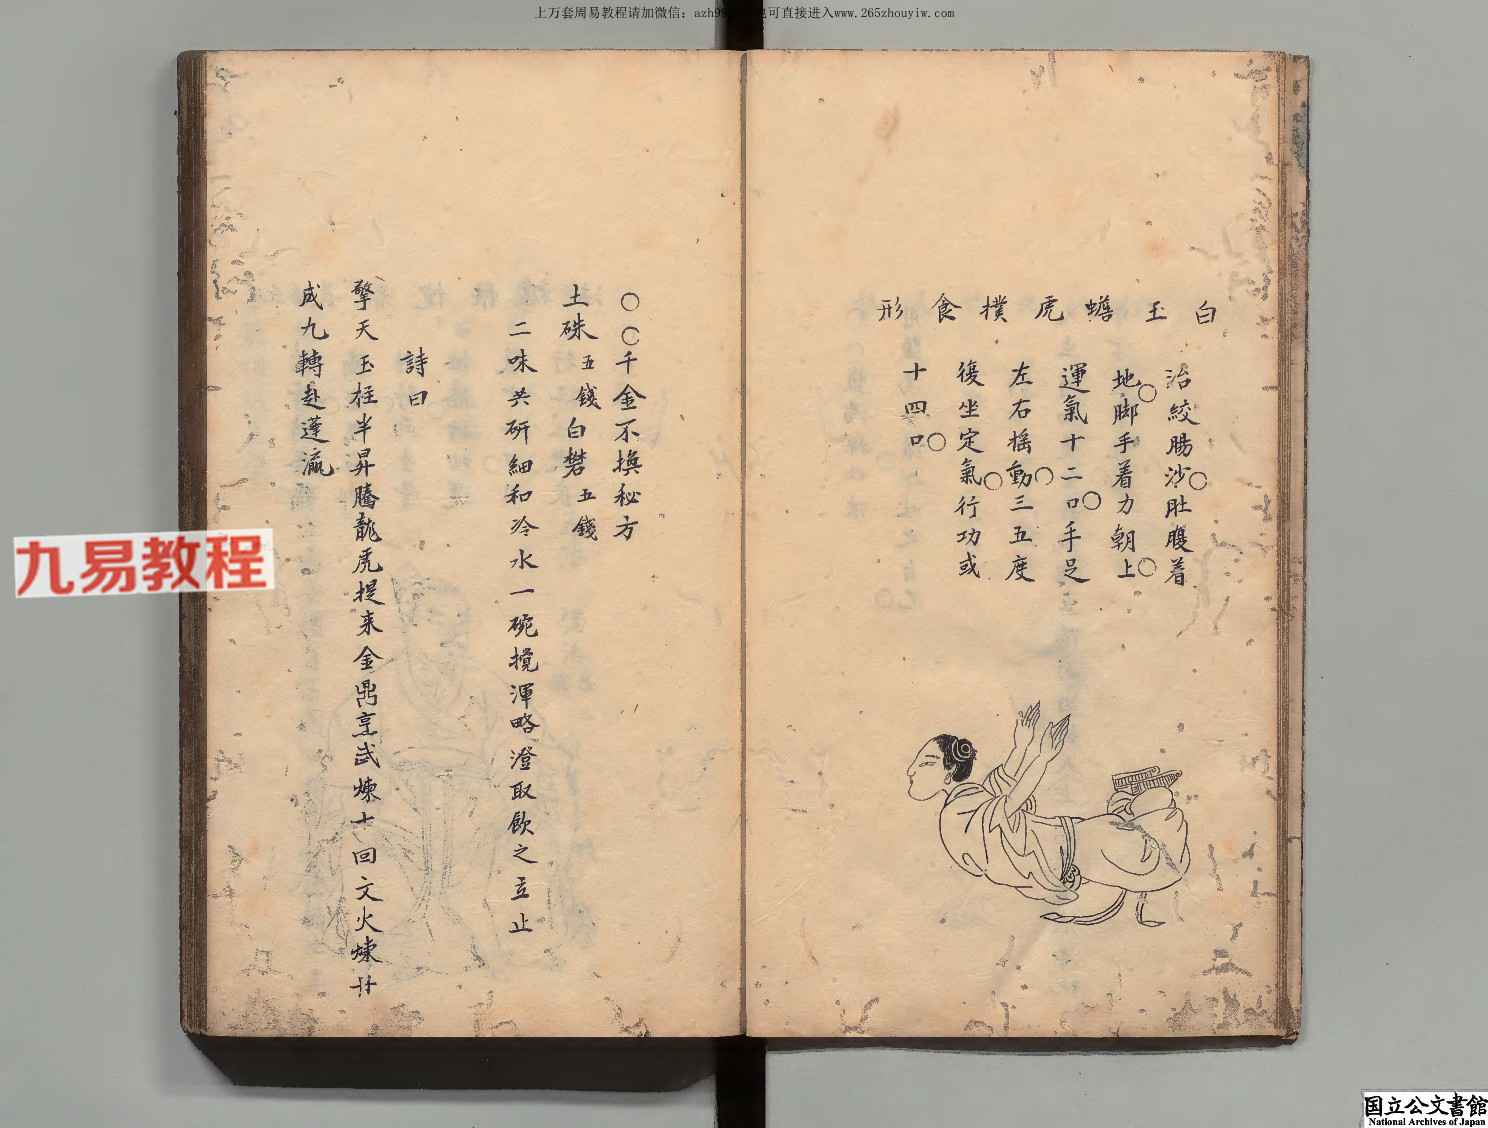 上万套周易教程请加微信：azh99 也可直接进入www.265zhouyiw.com
白玉蟾虎撲食形
治絞腸沙○肚腹着
地○脚手着力朝上○
運氣十二口○手足
左右搖動○三五度
後坐定氣○行功或
十四口○
○○千金不換秘方
土硃五錢白礬五錢
二味共研細和冷水一碗攪渾略澄取飲之立止
詩曰
擎天玉柱半昇騰龍虎提来金鼎烹武煉十回文火煉
成九轉赴蓬瀛
九易教程
国立公文書館
National Archives of Japan